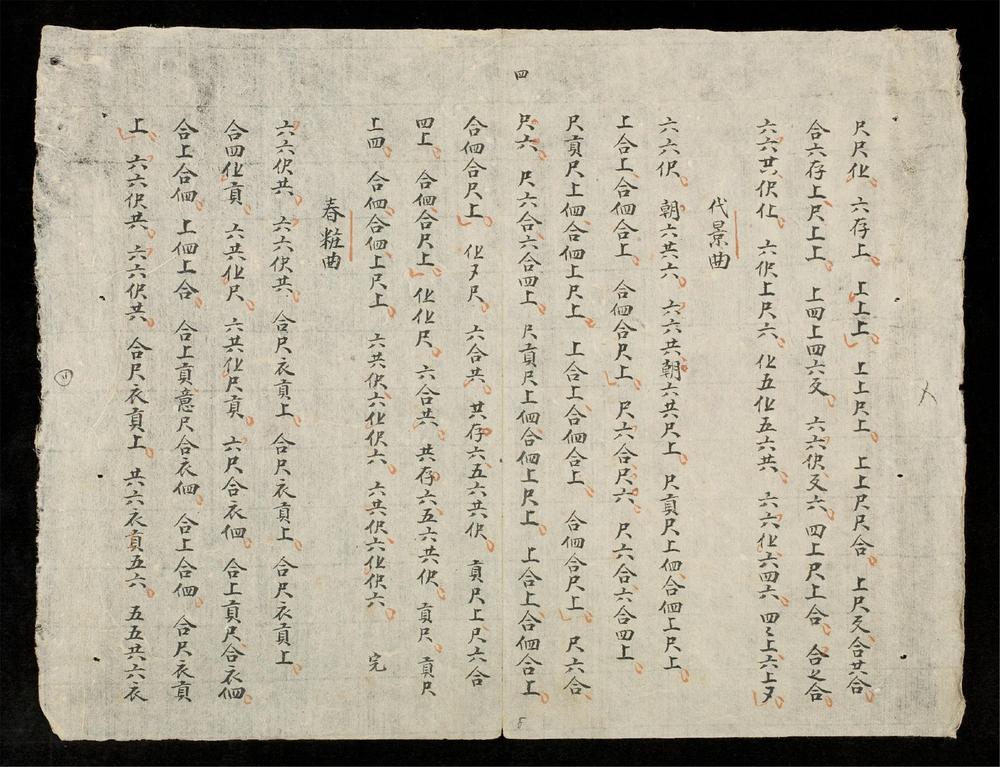 四
尺尺化 六存上 上上上 上上尺上 上上尺尺合 上尺㕛合共合
合六存上尺上上 上四上四六㕛 六六伬㕛六 四上尺上合 合之合
六六共伬化 六伬上尺六 化五化五六共 六六化六四六 四ミ上六上
代景曲
六六伬 朝六共六 六六共朝六共尺上 尺貢尺上㑔合㑔上尺上
上合上合㑔合上 合㑔合尺上 尺六合尺六 尺六合六合四上
尺貢尺上㑔合㑔上尺上 上合上合㑔合上 合㑔合尺上 尺六合
尺六 尺六合六合四上 尺貢尺上㑔合㑔上尺上 上合上合㑔合上
合㑔合尺上 化 尺 六合共 共存六五六共伬 貢尺上尺六合
四上 合㑔合尺上 化化尺 六合共 共存六五六共伬 貢尺 貢尺
上四 合㑔合㑔上尺上 六共伬六化伬六 六共伬六化伬六 完
春粧曲
六六伬共 六六伬共 合尺衣貢上 合尺衣貢上 合尺衣貢上
合四化貢 六共化尺 六共化尺貢 六尺合衣㑔 合上貢尺合衣㑔
合上合㑔 上㑔上合 合上貢意尺合衣㑔 合上合㑔 合尺衣貢
上 六六伬共 六六伬共 合尺衣貢上 共六衣貢五六 五五共六衣